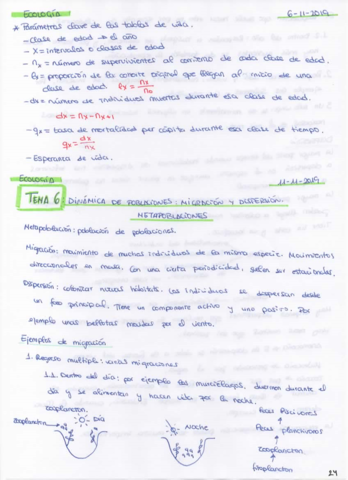 ECOLOGÍA 6-11-2019
* Parámetros clave de las tablas de vida.
- Clase de edad → el año
- X = intervalos o clases de edad
- nx = número de supervivientes al comienzo de cada clase de edad.
- lx = proporción de la cohorte original que llegan al inicio de una
clase de edad. lx = nx/n0
- dx = número de individuos muertos durante esa clase de edad.
dx = nx - nx+1
- qx = tasa de mortalidad per cápita durante esa clase de tiempo.
qx = dx/nx
- Esperanza de vida.
ECOLOGÍA 11-11-2019
TEMA 6: DINÁMICA DE POBLACIONES: MIGRACIÓN Y DISPERSIÓN.
METAPOBLACIONES
Metapoblación: población de poblaciones.
Migración: movimiento de muchos individuos de la misma especie. Movimientos
direccionales en masa, con una cierta periodicidad, suelen ser estacionales.
Dispersión: colonizar nuevos hábitats. Los individuos se dispersan desde
un foco principal. Tiene un componente activo y uno pasivo. Por
ejemplo unas bellotas movidas por el viento.
Ejemplos de migración
1. Regreso múltiple: varias migraciones
1.1. Dentro del día: por ejemplo los murciélagos, duermen durante el
día y se alimentan y hacen vida por la noche.
zooplancton
fitoplancton
Día
Noche
Peces piscívoros
Peces planctívoros
zooplancton
fitoplancton
24